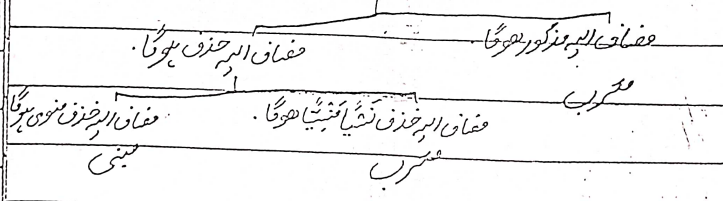 مضاف الیہ مذکور ھوگا۔ مضاف الیہ حذف ہوگا۔
معرب
مضاف الیہ حذف نَسْیًا مَنْسِیًّا ھوگا۔ مضاف الیہ حذف منوی ہوگا
معرب مبنی